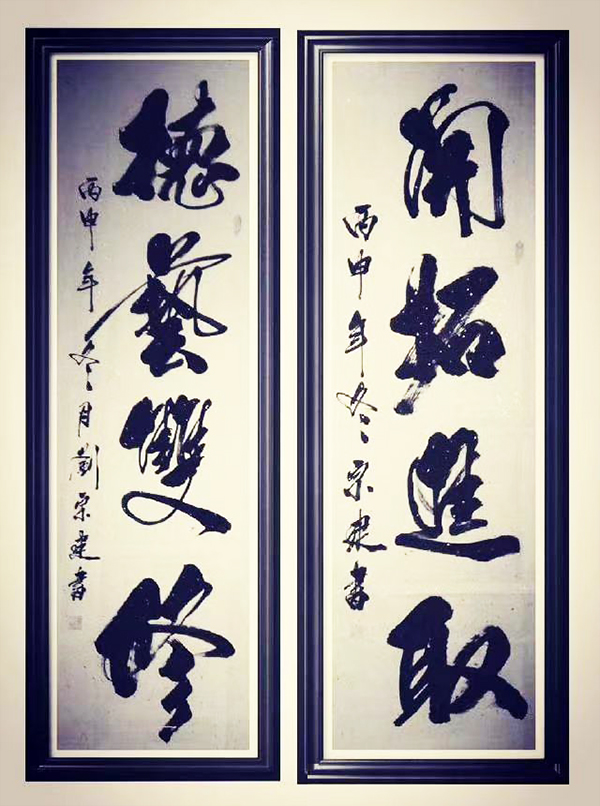 開拓進取
丙申年冬宗建書
德藝雙修
丙申年冬月劉宗建書